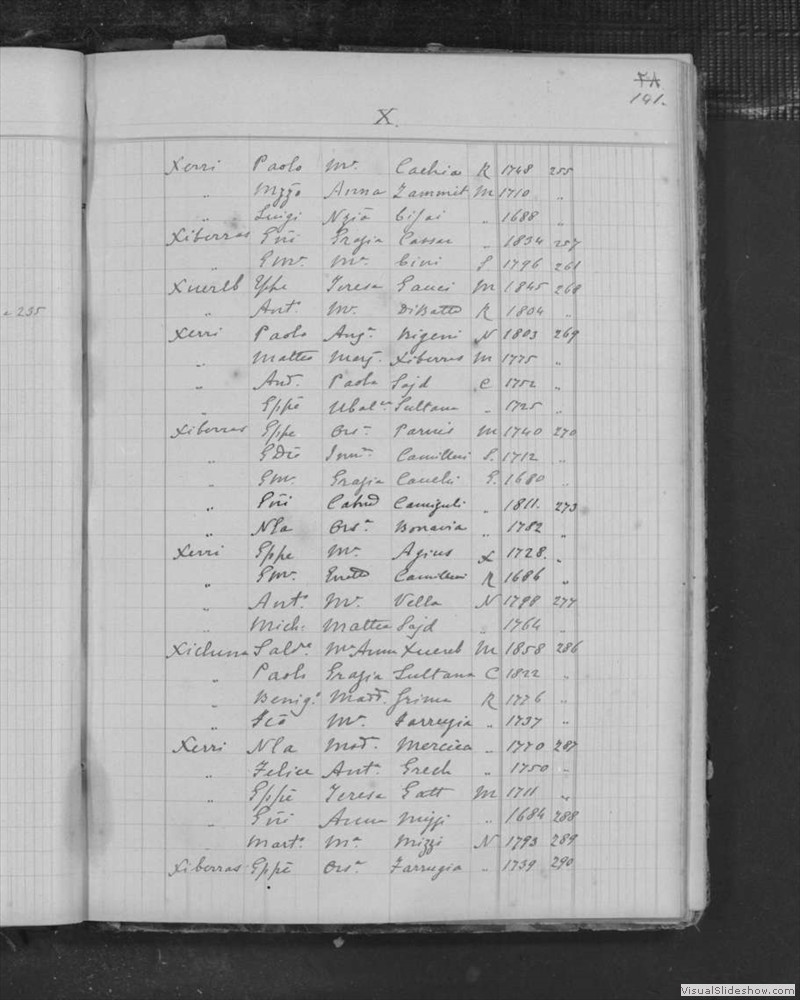 191.
X.
a 235
Xerri Paolo Mª. Cachia R 1748 255
„ Mzzo Anna Zammit M 1710 „
„ Luigi Nzia Cifai „ 1688 „
Xiberras Gñi Grazia Cassar „ 1834 257
„ Gmª. Mª. Cini S 1796 261
Xuereb Gphe Teresa Gauci M 1845 268
„ Antº. Mª. DiBatto R 1804 „
Xerri Paolo Angª. Bigeni N 1803 269
„ Matteo Marg. Xiberras M 1775 „
„ And. Paola Sajd C 1752 „
„ Gppe Ubalª Sultana „ 1725 „
Xiberras Gppe Orsª. Parnis M 1740 270
„ GDto Immª. Camilleri S. 1712 „
„ Gmª. Grazia Cauchi G. 1680 „
„ Gñi Catnd Camiguli „ 1811. 273
„ Nla Orsª. Bonavia „ 1782 „
Xerri Gppe Mª. Agius X 1728. „
„ Gmª. Camilleri R 1686 „
„ Antº. Mª. Vella N 1798 277
„ Mich. Mattea Sajd „ 1764 „
Xicluna Salvº. Mª Anna Xuereb M 1858 286
„ Paolo Grazia Sultana C 1822 „
„ Benigº. Madd. Grima R 1776 „
„ Fco Mª. Farrugia „ 1737 „
Xerri Nla Mad. Mercieca „ 1770 287
„ Felice Antª. Grech „ 1750 „
„ Gppe Teresa Gatt M 1711 „
„ Gñi Anna Mizzi „ 1684 288
„ Martº. Mª. Mizzi N 1793 289
Xiberras Gppe Orsª. Farrugia „ 1739 290
VisualSlideshow.com